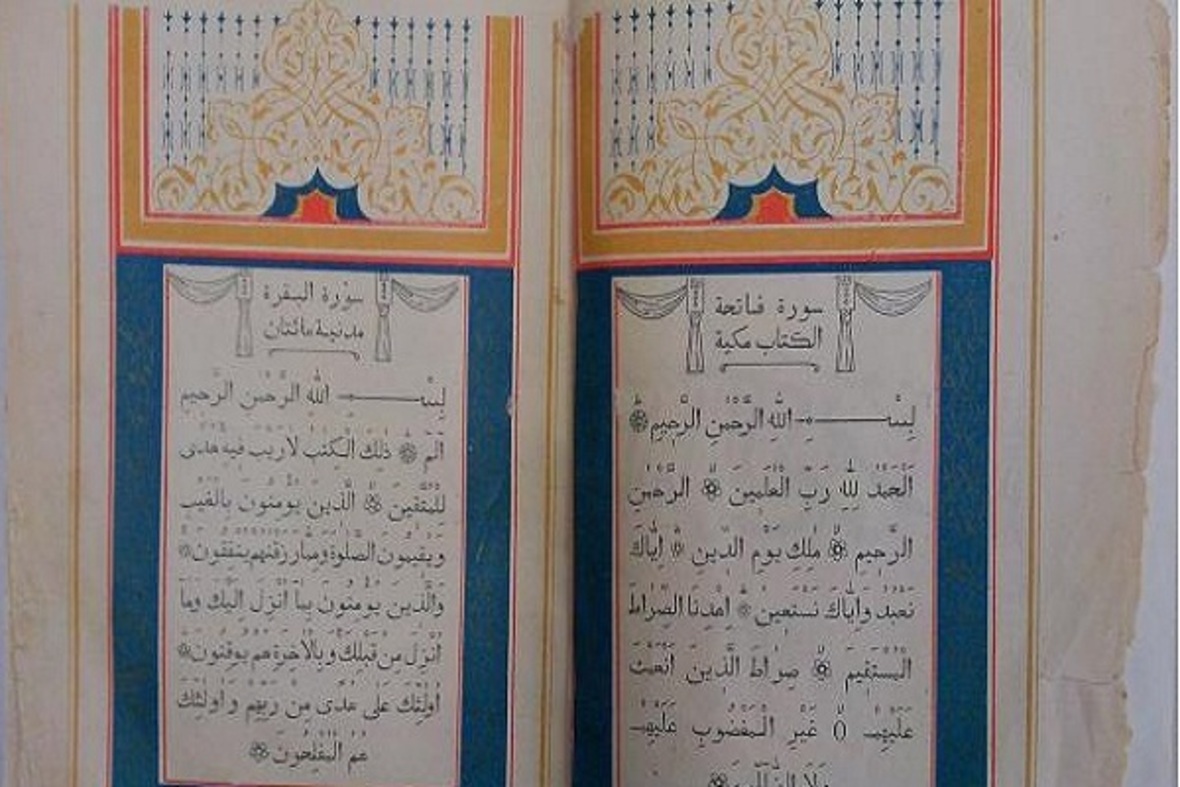 سورة فاتحة
الكتاب مكية
بسم الله الرحمن الرحيم
الحمد لله رب العلمين الرحمن
الرحيم ملك يوم الدين اياك
نعبد واياك نستعين اهدنا الصراط
المستقيم صراط الذين انعمت
عليهم غير المغضوب عليهم
ولا الضالين
سورة البقرة
مدنية مائتان
بسم الله الرحمن الرحيم
الم ذلك الكتب لا ريب فيه هدى
للمتقين الذين يومنون بالغيب
ويقيمون الصلوة ومما رزقنهم ينفقون
والذين يومنون بما انزل اليك وما
انزل من قبلك وبالاخرة هم يوقنون
اولئك على هدى من ربهم واولئك
هم المفلحون